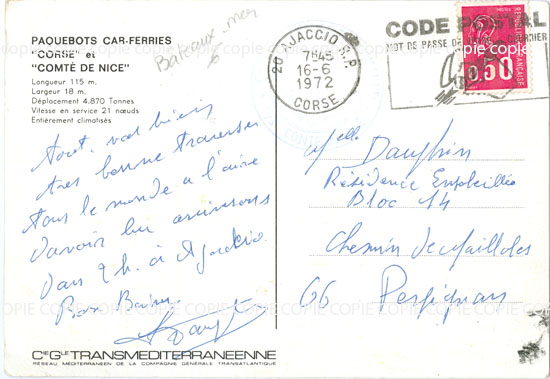 PAQUEBOTS CAR-FERRIES
"CORSE" et
"COMTÉ DE NICE"
Longueur 115 m.
Largeur 18 m.
Déplacement 4.870 Tonnes
Vitesse en service 21 nœuds
Entièrement climatisés
Bateaux mer
6
tout va bien
très bonne traversée
tous le monde a l'aire
d'avoir bu arrivons
dans 2 h. à Ajaccio
Bons Baisers
Cie Gle TRANSMEDITERRANEENNE
RÉSEAU MÉDITERRANÉEN DE LA COMPAGNIE GÉNÉRALE TRANSATLANTIQUE
20 AJACCIO R.P.
7H45
16-6
1972
CORSE
CODE POSTAL
MOT DE PASSE DE VOTRE COURRIER
0,50
FRANÇAISE
Melle Dauphin
Résidence
Bloc 14
Chemin de Mailloles
66 Perpignan
COPIE COPIE COPIE COPIE COPIE COPIE